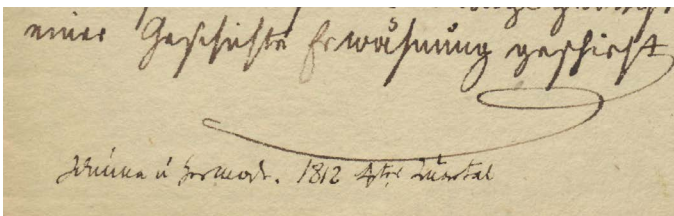 einer Geschichte Erwähnung geschieht
Idunna u Hermode. 1812 4tes Quartal